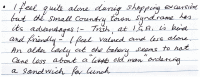 • I feel quite alone during shopping excursions
but the small country town syndrome has
its advantages:- Trish, at I.G.A. is kind
and friendly - I feel valued and less alone.
An older lady at the bakery seems to not
care less about a little old man ordering
a sandwich for lunch